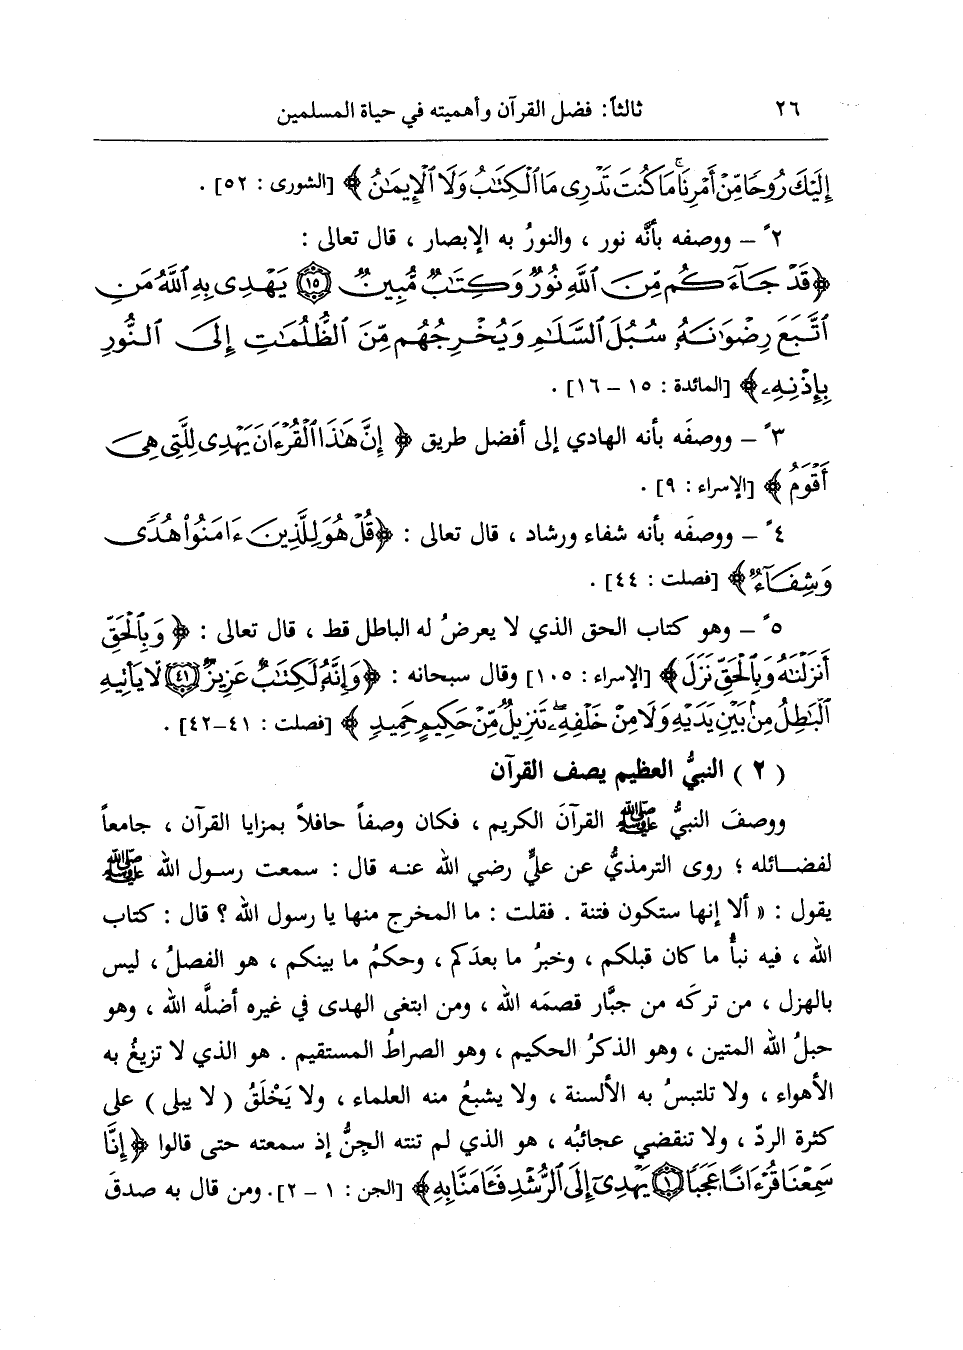 ٢٦ ثالثاً: فضل القرآن وأهميته في حياة المسلمين
إِلَيْكَ رُوحًا مِّنْ أَمْرِنَا ۚ مَا كُنتَ تَدْرِى مَا ٱلْكِتَٰبُ وَلَا ٱلْإِيمَٰنُ ﴾ [الشورى : ٥٢] .
٢ً – ووصفه بأنَّه نور ، والنورُ به الإبصار ، قال تعالى :
﴿ قَدْ جَآءَكُم مِّنَ ٱللَّهِ نُورٌ وَكِتَٰبٌ مُّبِينٌ ۝١٥ يَهْدِى بِهِ ٱللَّهُ مَنِ
ٱتَّبَعَ رِضْوَٰنَهُۥ سُبُلَ ٱلسَّلَٰمِ وَيُخْرِجُهُم مِّنَ ٱلظُّلُمَٰتِ إِلَى ٱلنُّورِ
بِإِذْنِهِۦ ﴾ [المائدة : ١٥ – ١٦] .
٣ً – ووصفَه بأنه الهادي إلى أفضل طريق ﴿ إِنَّ هَٰذَا ٱلْقُرْءَانَ يَهْدِى لِلَّتِى هِىَ
أَقْوَمُ ﴾ [الإسراء : ٩] .
٤ً – ووصفَه بأنه شفاء ورشاد ، قال تعالى : ﴿ قُلْ هُوَ لِلَّذِينَ ءَامَنُوا۟ هُدًى
وَشِفَآءٌ ﴾ [فصلت : ٤٤] .
٥ً – وهو كتاب الحق الذي لا يعرضُ له الباطل قط ، قال تعالى : ﴿ وَبِٱلْحَقِّ
أَنزَلْنَٰهُ وَبِٱلْحَقِّ نَزَلَ ﴾ [الإسراء : ١٠٥] وقال سبحانه : ﴿ وَإِنَّهُۥ لَكِتَٰبٌ عَزِيزٌ ۝٤١ لَّا يَأْتِيهِ
ٱلْبَٰطِلُ مِنۢ بَيْنِ يَدَيْهِ وَلَا مِنْ خَلْفِهِۦ ۖ تَنزِيلٌ مِّنْ حَكِيمٍ حَمِيدٍ ﴾ [فصلت : ٤١–٤٢] .
( ٢ ) النبيُّ العظيم يصف القرآن
ووصفَ النبيُّ ﷺ القرآنَ الكريم ، فكان وصفاً حافلاً بمزايا القرآن ، جامعاً
لفضائله ؛ روى الترمذيُّ عن عليٍّ رضي الله عنه قال : سمعت رسول الله ﷺ
يقول : « ألا إنها ستكون فتنة . فقلت : ما المخرج منها يا رسول الله ؟ قال : كتاب
الله ، فيه نبأُ ما كان قبلكم ، وخبرُ ما بعدَكم ، وحكمُ ما بينكم ، هو الفصلُ ، ليس
بالهزل ، من تركَه من جبَّار قصمَه الله ، ومن ابتغى الهدى في غيره أضلَّه الله ، وهو
حبلُ الله المتين ، وهو الذكرُ الحكيم ، وهو الصراطُ المستقيم . هو الذي لا تزيغُ به
الأهواء ، ولا تلتبسُ به الألسنة ، ولا يشبعُ منه العلماء ، ولا يَخْلَقُ ( لا يبلى ) على
كثرة الردّ ، ولا تنقضي عجائبُه ، هو الذي لم تنته الجِنُّ إذ سمعته حتى قالوا ﴿ إِنَّا
سَمِعْنَا قُرْءَانًا عَجَبًا ۝١ يَهْدِىٓ إِلَى ٱلرُّشْدِ فَـَٔامَنَّا بِهِ ﴾ [الجن : ١ – ٢]. ومن قال به صدقَ